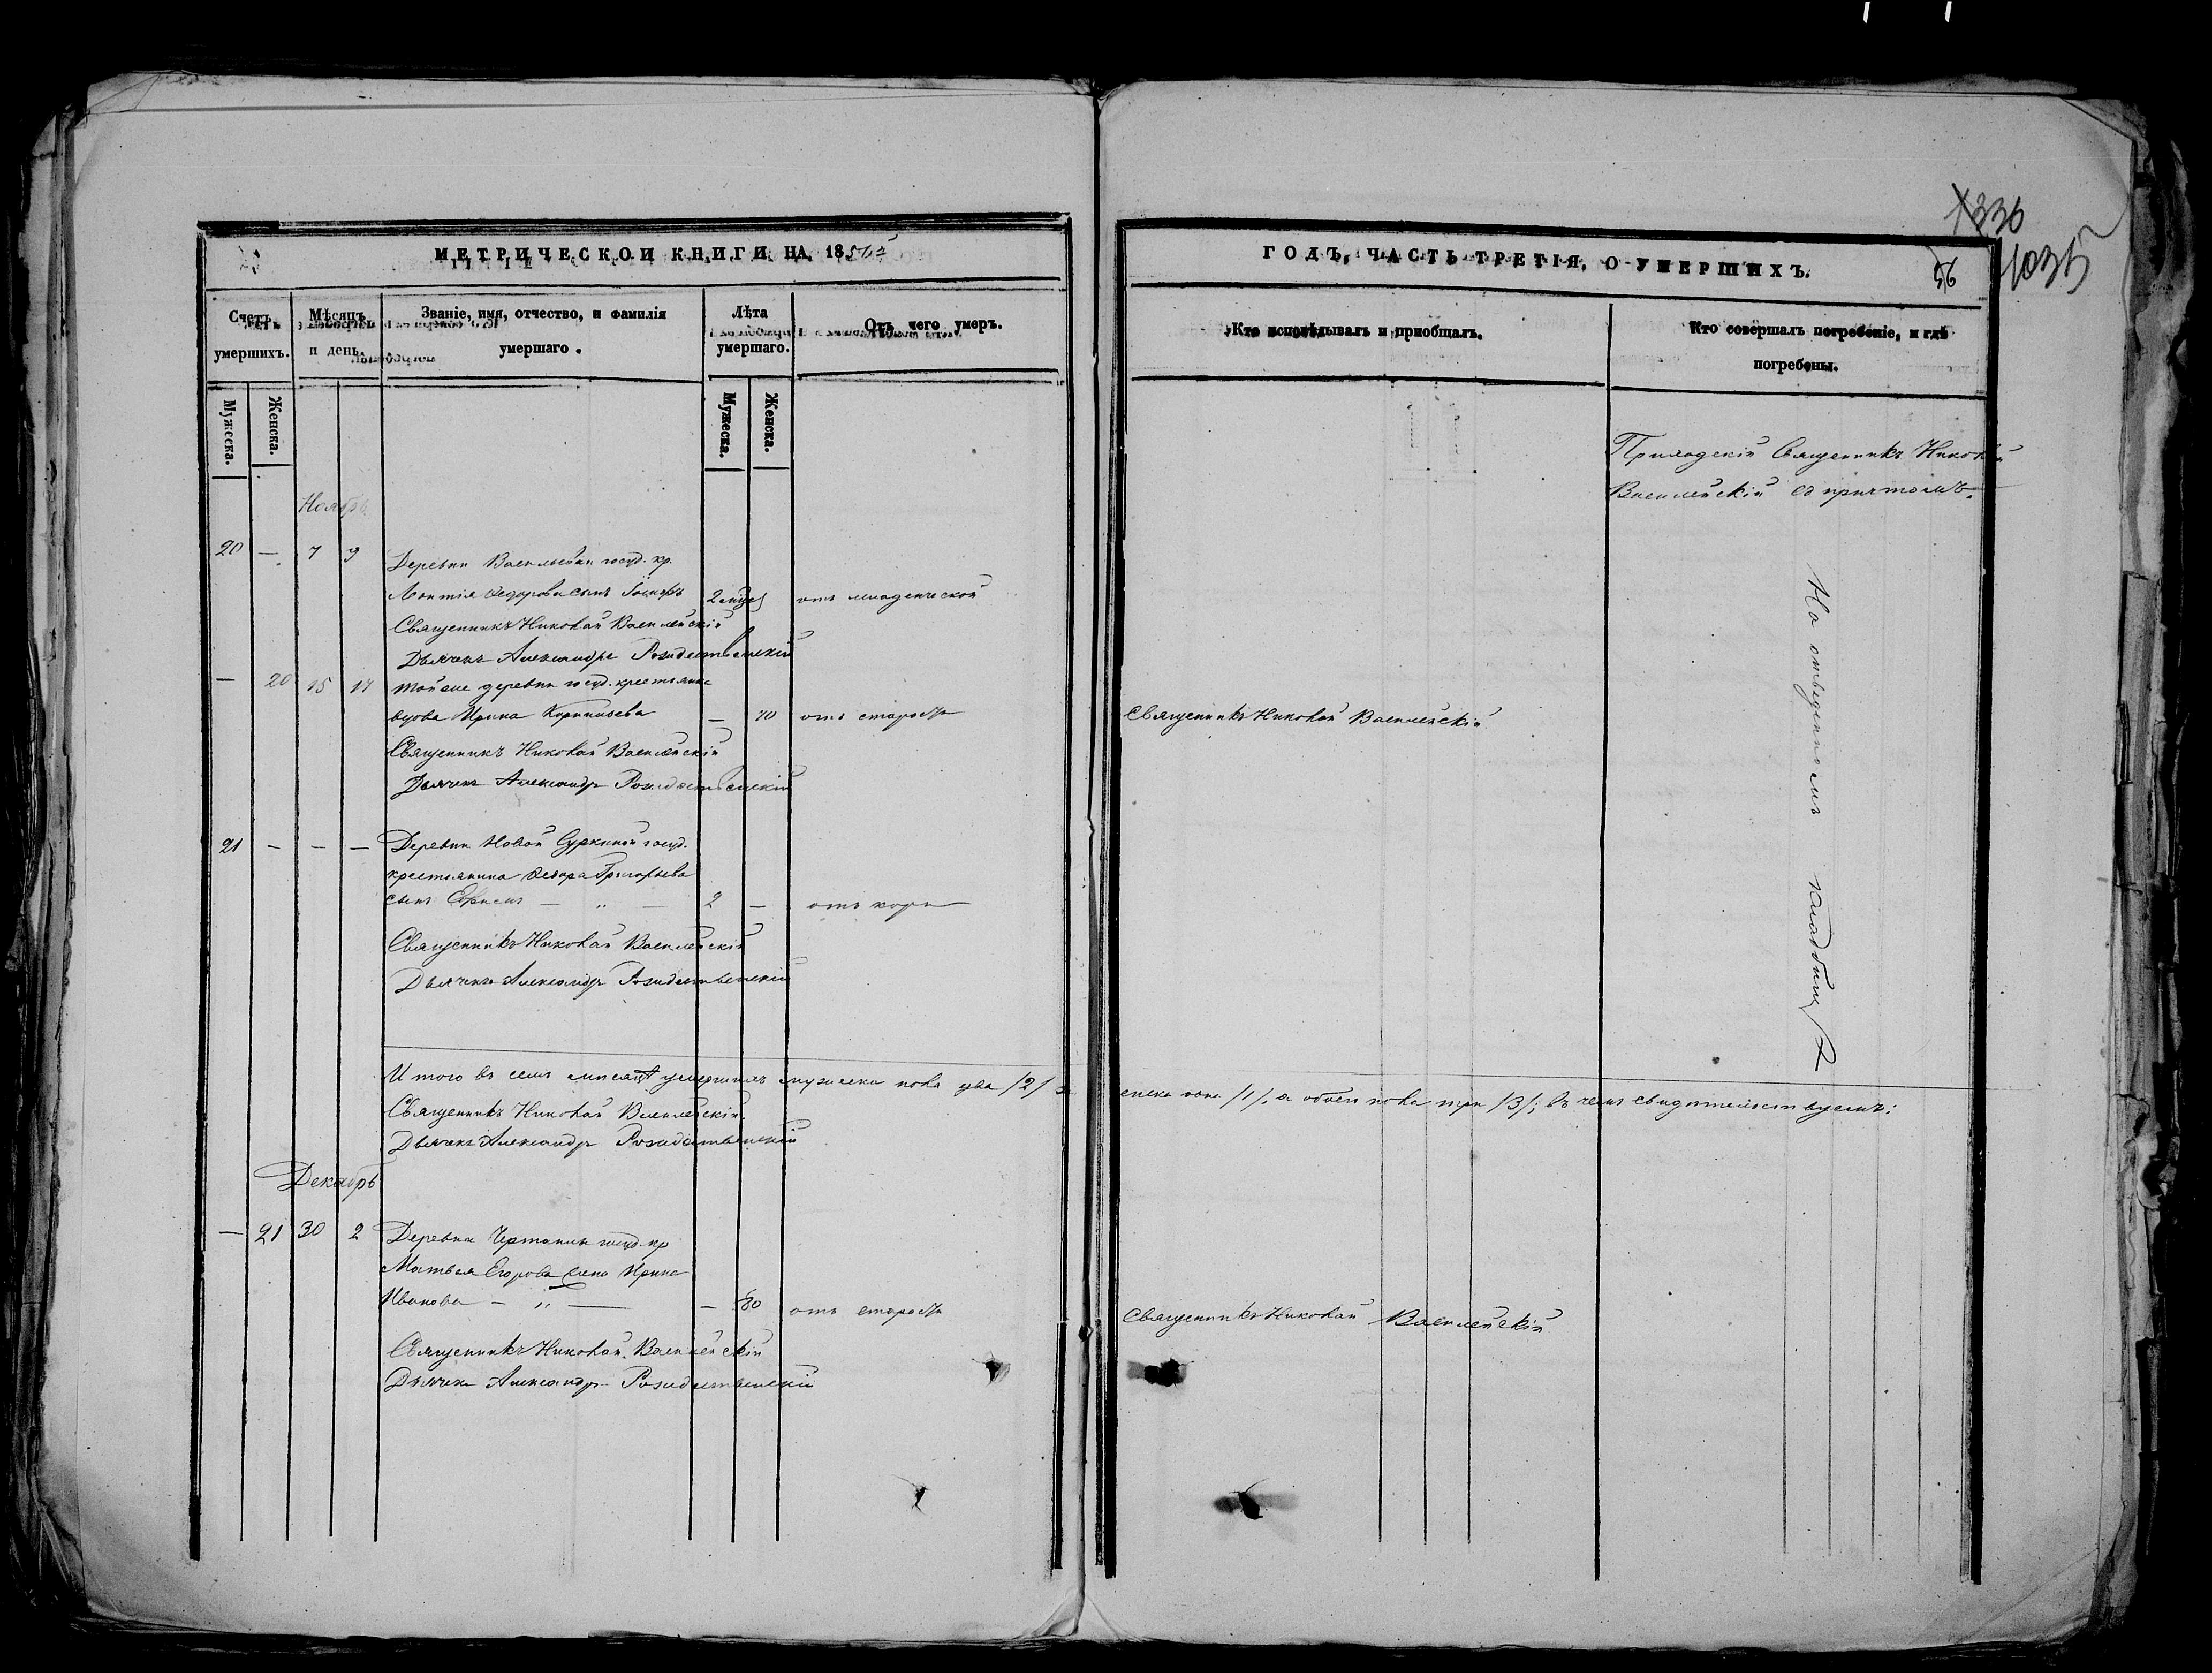 МЕТРИЧЕСКОЙ КНИГИ НА 18
Счетъ умершихъ.
Мѣсяцъ и день.
Званіе, имя, отчество, и фамилія умершаго.
Лѣта умершаго.
Отъ чего умеръ.
Мужеска.
Женска.
Мужеска.
Женска.
Ноябрь
20 — 7 9 Деревни Васильевки госуд. кр.
Федорова сынъ 2 отъ младенческой
Священникъ Николай Василейскій
Дьячекъ Александръ Рождественскій
— 20 15 17 Тойже деревни госуд. крестьянка
вдова Ирина — 70 отъ старости
Священникъ Николай Василейскій
Дьячекъ Александръ Рождественскій
21 — — — Деревни Новой Суркиной госуд.
крестьянина Федора Григорьева
сынъ Ефимъ — „ — 2 — отъ кори
Священникъ Николай Василейскій
Дьячекъ Александръ Рождественскій
Итого въ семъ мѣсяцѣ умершихъ мужеска пола два /2/
Священникъ Николай Василейскій
Дьячекъ Александръ Рождественскій
Декабрь
— 21 30 2 Деревни госуд. кр
Матвея Егорова жена Ирина
Иванова — „ — — 80 отъ старости
Священникъ Николай Василейскій
Дьячекъ Александръ Рождественскій
336
1035
ГОДЪ, ЧАСТЬ ТРЕТІЯ, О УМЕРШИХЪ.
Кто исповѣдывалъ и пріобщалъ.
Кто совершалъ погребеніе, и гдѣ погребены.
Приходскій Священникъ Николай
Василейскій съ причтомъ.
На отведенномъ кладбищѣ
Священникъ Николай Василейскій
енска одна /1/, а обоего пола три /3/; въ чемъ свидѣтельствуемъ:
Священникъ Николай Василейскій